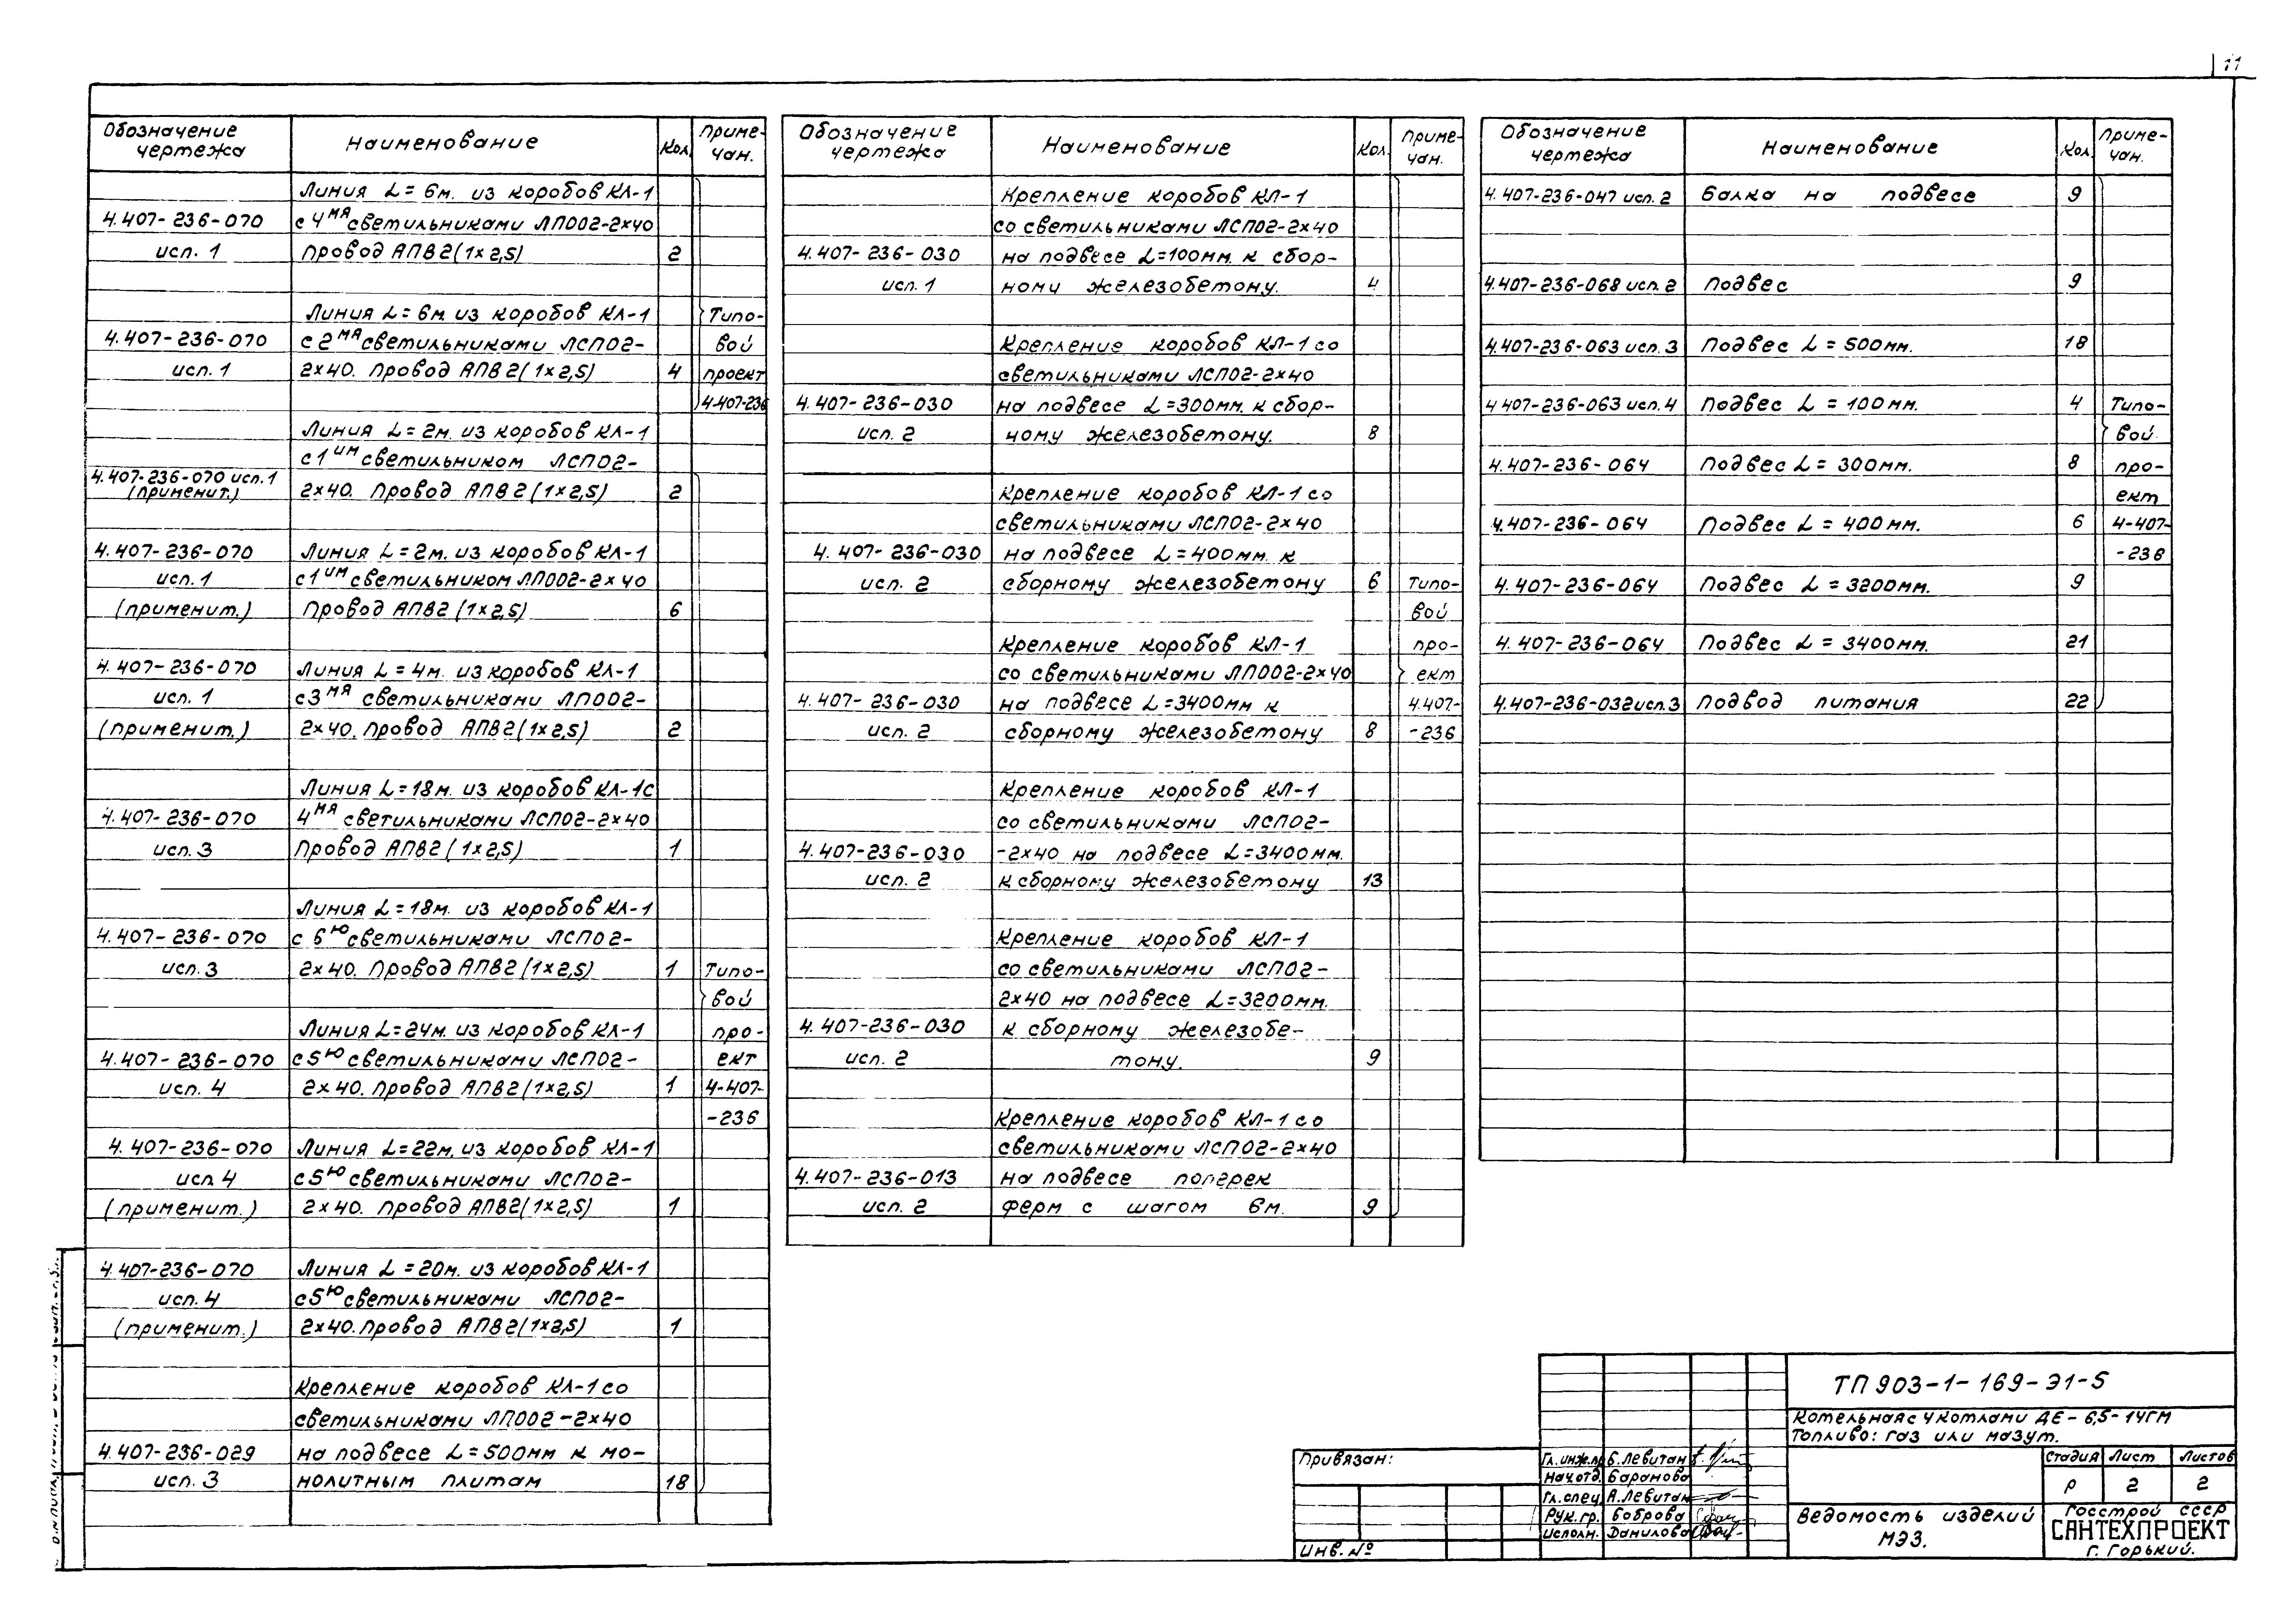 11
Обозначение чертежа Наименование Кол. Приме-чан.
Линия L= 6м. из коробов КЛ-1
4.407-236-070 с 4мя светильниками ЛП002-2х40
исп. 1 Провод АПВ2(1х2,5) 2
Линия L= 6м. из коробов КЛ-1 Типо-
4.407-236-070 с 2мя светильниками ЛСП02- вой
исп. 1 2х40. Провод АПВ2(1х2,5) 4 проект
4-407-236
Линия L= 2м. из коробов КЛ-1
с 1им светильником ЛСП02-
4.407-236-070 исп. 1
(применит.) 2х40. Провод АПВ2(1х2,5) 2
4.407-236-070 Линия L=2м. из коробов КЛ-1
исп. 1 с 1им светильником ЛП002-2х40
(применит.) Провод АПВ2 (1х2,5) 6
4.407-236-070 Линия L=4м. из коробов КЛ-1
исп. 1 с3мя светильниками ЛП002-
(применит.) 2х40. Провод АПВ2(1х2,5) 2
Линия L=18м. из коробов КЛ-1с
4.407-236-070 4мя светильниками ЛСП02-2х40
исп. 3 Провод АПВ2(1х2,5) 1
Линия L=18м. из коробов КЛ-1
4.407-236-070 с 6ю светильниками ЛСП02-
исп. 3 2х40. Провод АПВ2(1х2,5) 1 Типо-
вой
Линия L=24м. из коробов КЛ-1 про-
4.407-236-070 с5ю светильниками ЛСП02- ект
исп. 4 2х40. Провод АПВ2(1х2,5) 1 4-407-
-236
4.407-236-070 Линия L=22м. из коробов КЛ-1
исп 4 с5ю светильниками ЛСП02-
(применит.) 2х40. Провод АПВ2(1х2,5) 1
4.407-236-070 Линия L=20м. из коробов КЛ-1
исп. 4 с5ю светильниками ЛСП02-
(применит.) 2х40. Провод АПВ2(1х2,5) 1
Крепление коробов КЛ-1со
светильниками ЛП002-2х40
4.407-236-029 на подвесе L=500мм к мо-
исп. 3 нолитным плитам 18
Обозначение чертежа Наименование Кол. Приме-чан.
Крепление коробов КЛ-1
со светильниками ЛСП02-2х40
4.407-236-030 на подвесе L=100мм. к сбор-
исп. 1 ному железобетону. 4
Крепление коробов КЛ-1 со
светильниками ЛСП02-2х40
4.407-236-030 на подвесе L=300мм. к сбор-
исп. 2 ному железобетону. 8
Крепление коробов КЛ-1 со
светильниками ЛСП02-2х40
4.407-236-030 на подвесе L=400мм. к
исп. 2 сборному железобетону 6 Типо-
вой
Крепление коробов КЛ-1 про-
со светильниками ЛП002-2х40 ект
4.407-236-030 на подвесе L=3400мм к 4.407-
исп. 2 сборному железобетону 8 -236
Крепление коробов КЛ-1
со светильниками ЛСП02-
4.407-236-030 -2х40 на подвесе L=3400мм.
исп. 2 к сборному железобетону 13
Крепление коробов КЛ-1
со светильниками ЛСП02-
2х40 на подвесе L=3200мм.
4.407-236-030 к сборному железобе-
исп. 2 тону. 9
Крепление коробов КЛ-1 со
светильниками ЛСП02-2х40
4.407-236-013 на подвесе поперек
исп. 2 ферм с шагом 6м. 9
Обозначение чертежа Наименование Кол. Приме-чан.
4.407-236-047 исп. 2 Балка на подвесе 9
4.407-236-068 исп. 2 Подвес 9
4.407-236-063 исп. 3 Подвес L = 500мм. 18
4.407-236-063 исп. 4 Подвес L = 100мм. 4 Типо-
вой
4.407-236-064 Подвес L = 300мм. 8 про-
ект
4.407-236-064 Подвес L = 400мм. 6 4-407-
-236
4.407-236-064 Подвес L = 3200мм. 9
4.407-236-064 Подвес L = 3400мм. 21
4.407-236-032исп.3 Подвод питания 22
ТП 903-1-169-Э1-5
Котельная с 4 котлами ДЕ-6,5-14ГМ
Топливо: газ или мазут.
Привязан:
Инв. №
Гл. инж.пр Б.Левитан
Нач.отд. Баранова
Гл. спец. А.Левитан
Рук.гр. Боброва
Исполн. Данилова
Стадия Лист Листов
Р 2 2
Ведомость изделий
МЭЗ.
Госстрой СССР
САНТЕХПРОЕКТ
г. Горький.